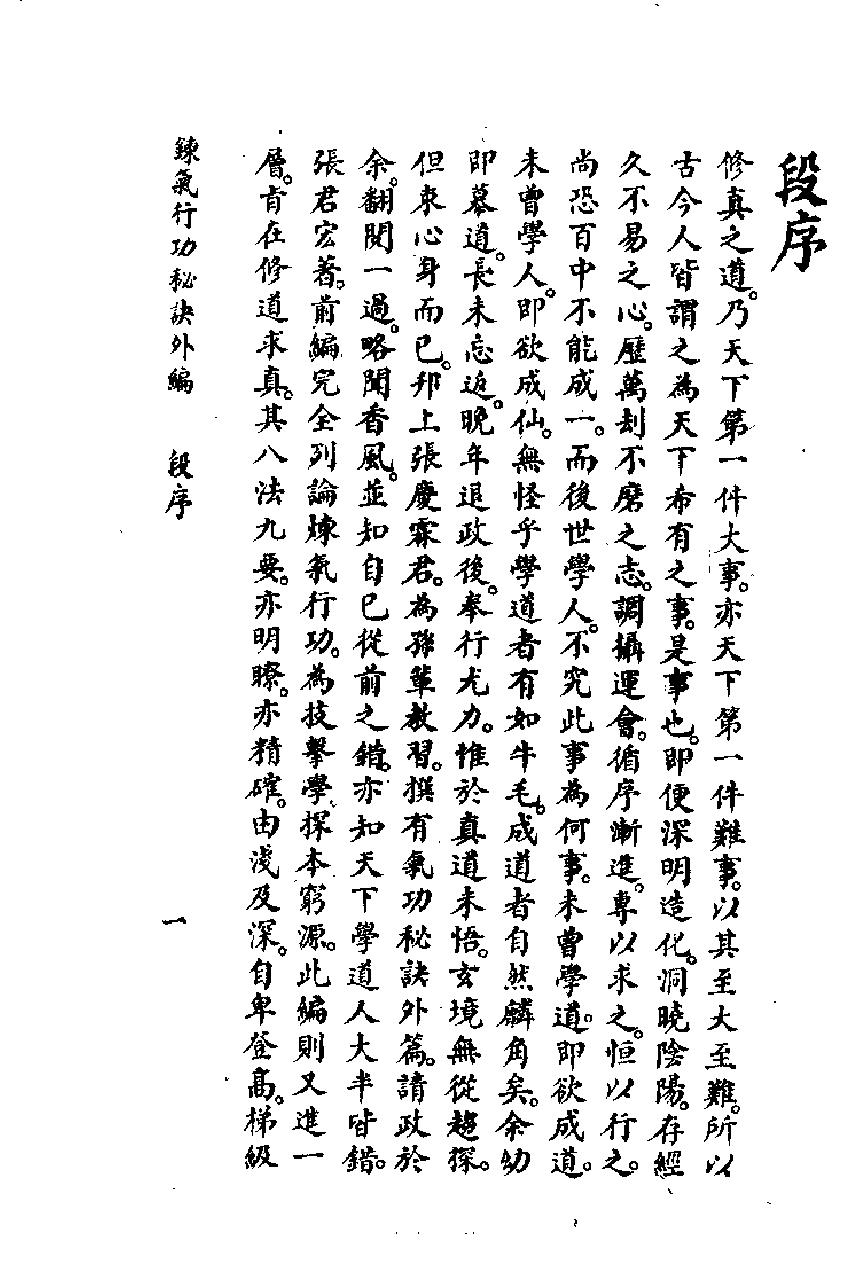 段序
修真之道。乃天下第一件大事。亦天下第一件難事。以其至大至難。所以
古今人皆謂之為天下希有之事。是事也。即便深明造化。洞曉陰陽。存經
久不易之心。歷萬刦不磨之志。調攝運會。循序漸進。專以求之。恒以行之。
尚恐百中不能成一。而後世學人。不究此事為何事。未曾學道。即欲成道。
未曾學人。即欲成仙。無怪乎學道者有如牛毛。成道者自然麟角矣。余幼
即慕道。長未忘返。晚年退政後。奉行尤力。惟於真道未悟。玄境無從趨探。
但束心身而已。邦上張慶霖君。為孫輩教習。撰有氣功秘訣外篇。請政於
余。翻閱一過。略聞香風。並知自己從前之錯。亦知天下學道人大半皆錯。
張君宏著。前編完全列論煉氣行功。為技擊學探本窮源。此編則又進一
層。肯在修道求真。其八法九要。亦明瞭。亦精確。由淺及深。自卑登高。梯級
鍊氣行功秘訣外編 段序 一